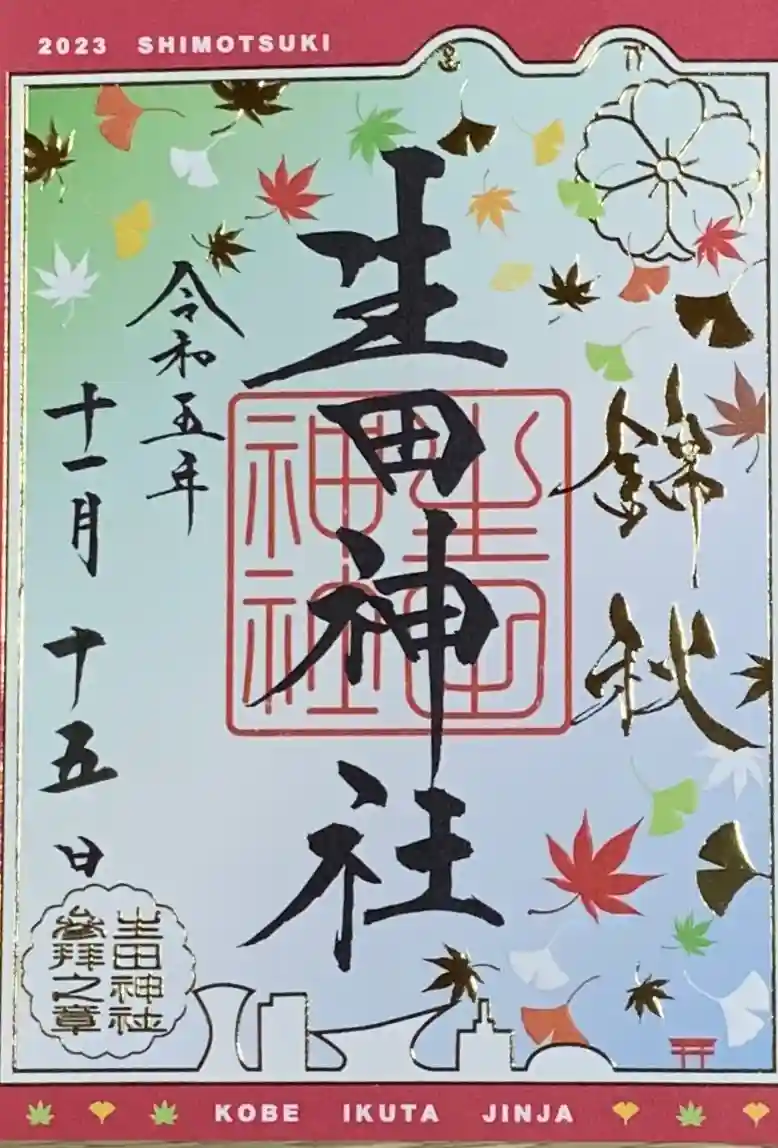 2023 SHIMOTSUKI
錦秋
生田神社
生田神社
令和五年
十一月十五日
生田神社
参拝之章
KOBE IKUTA JINJA